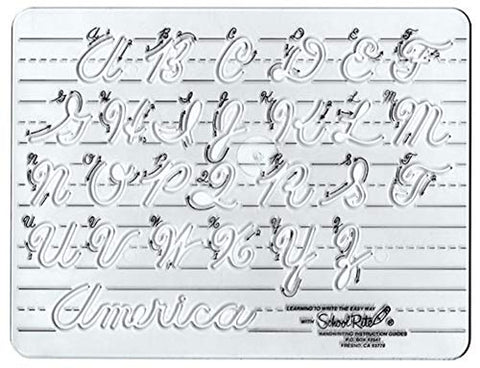 A B C D E F
G H I J K L M
N O P Q R S T
U V W X Y Z
America
LEARNING TO WRITE THE EASY WAY
WITH School Rite
HANDWRITING INSTRUCTION GUIDES
P.O. BOX
FRESNO, CA